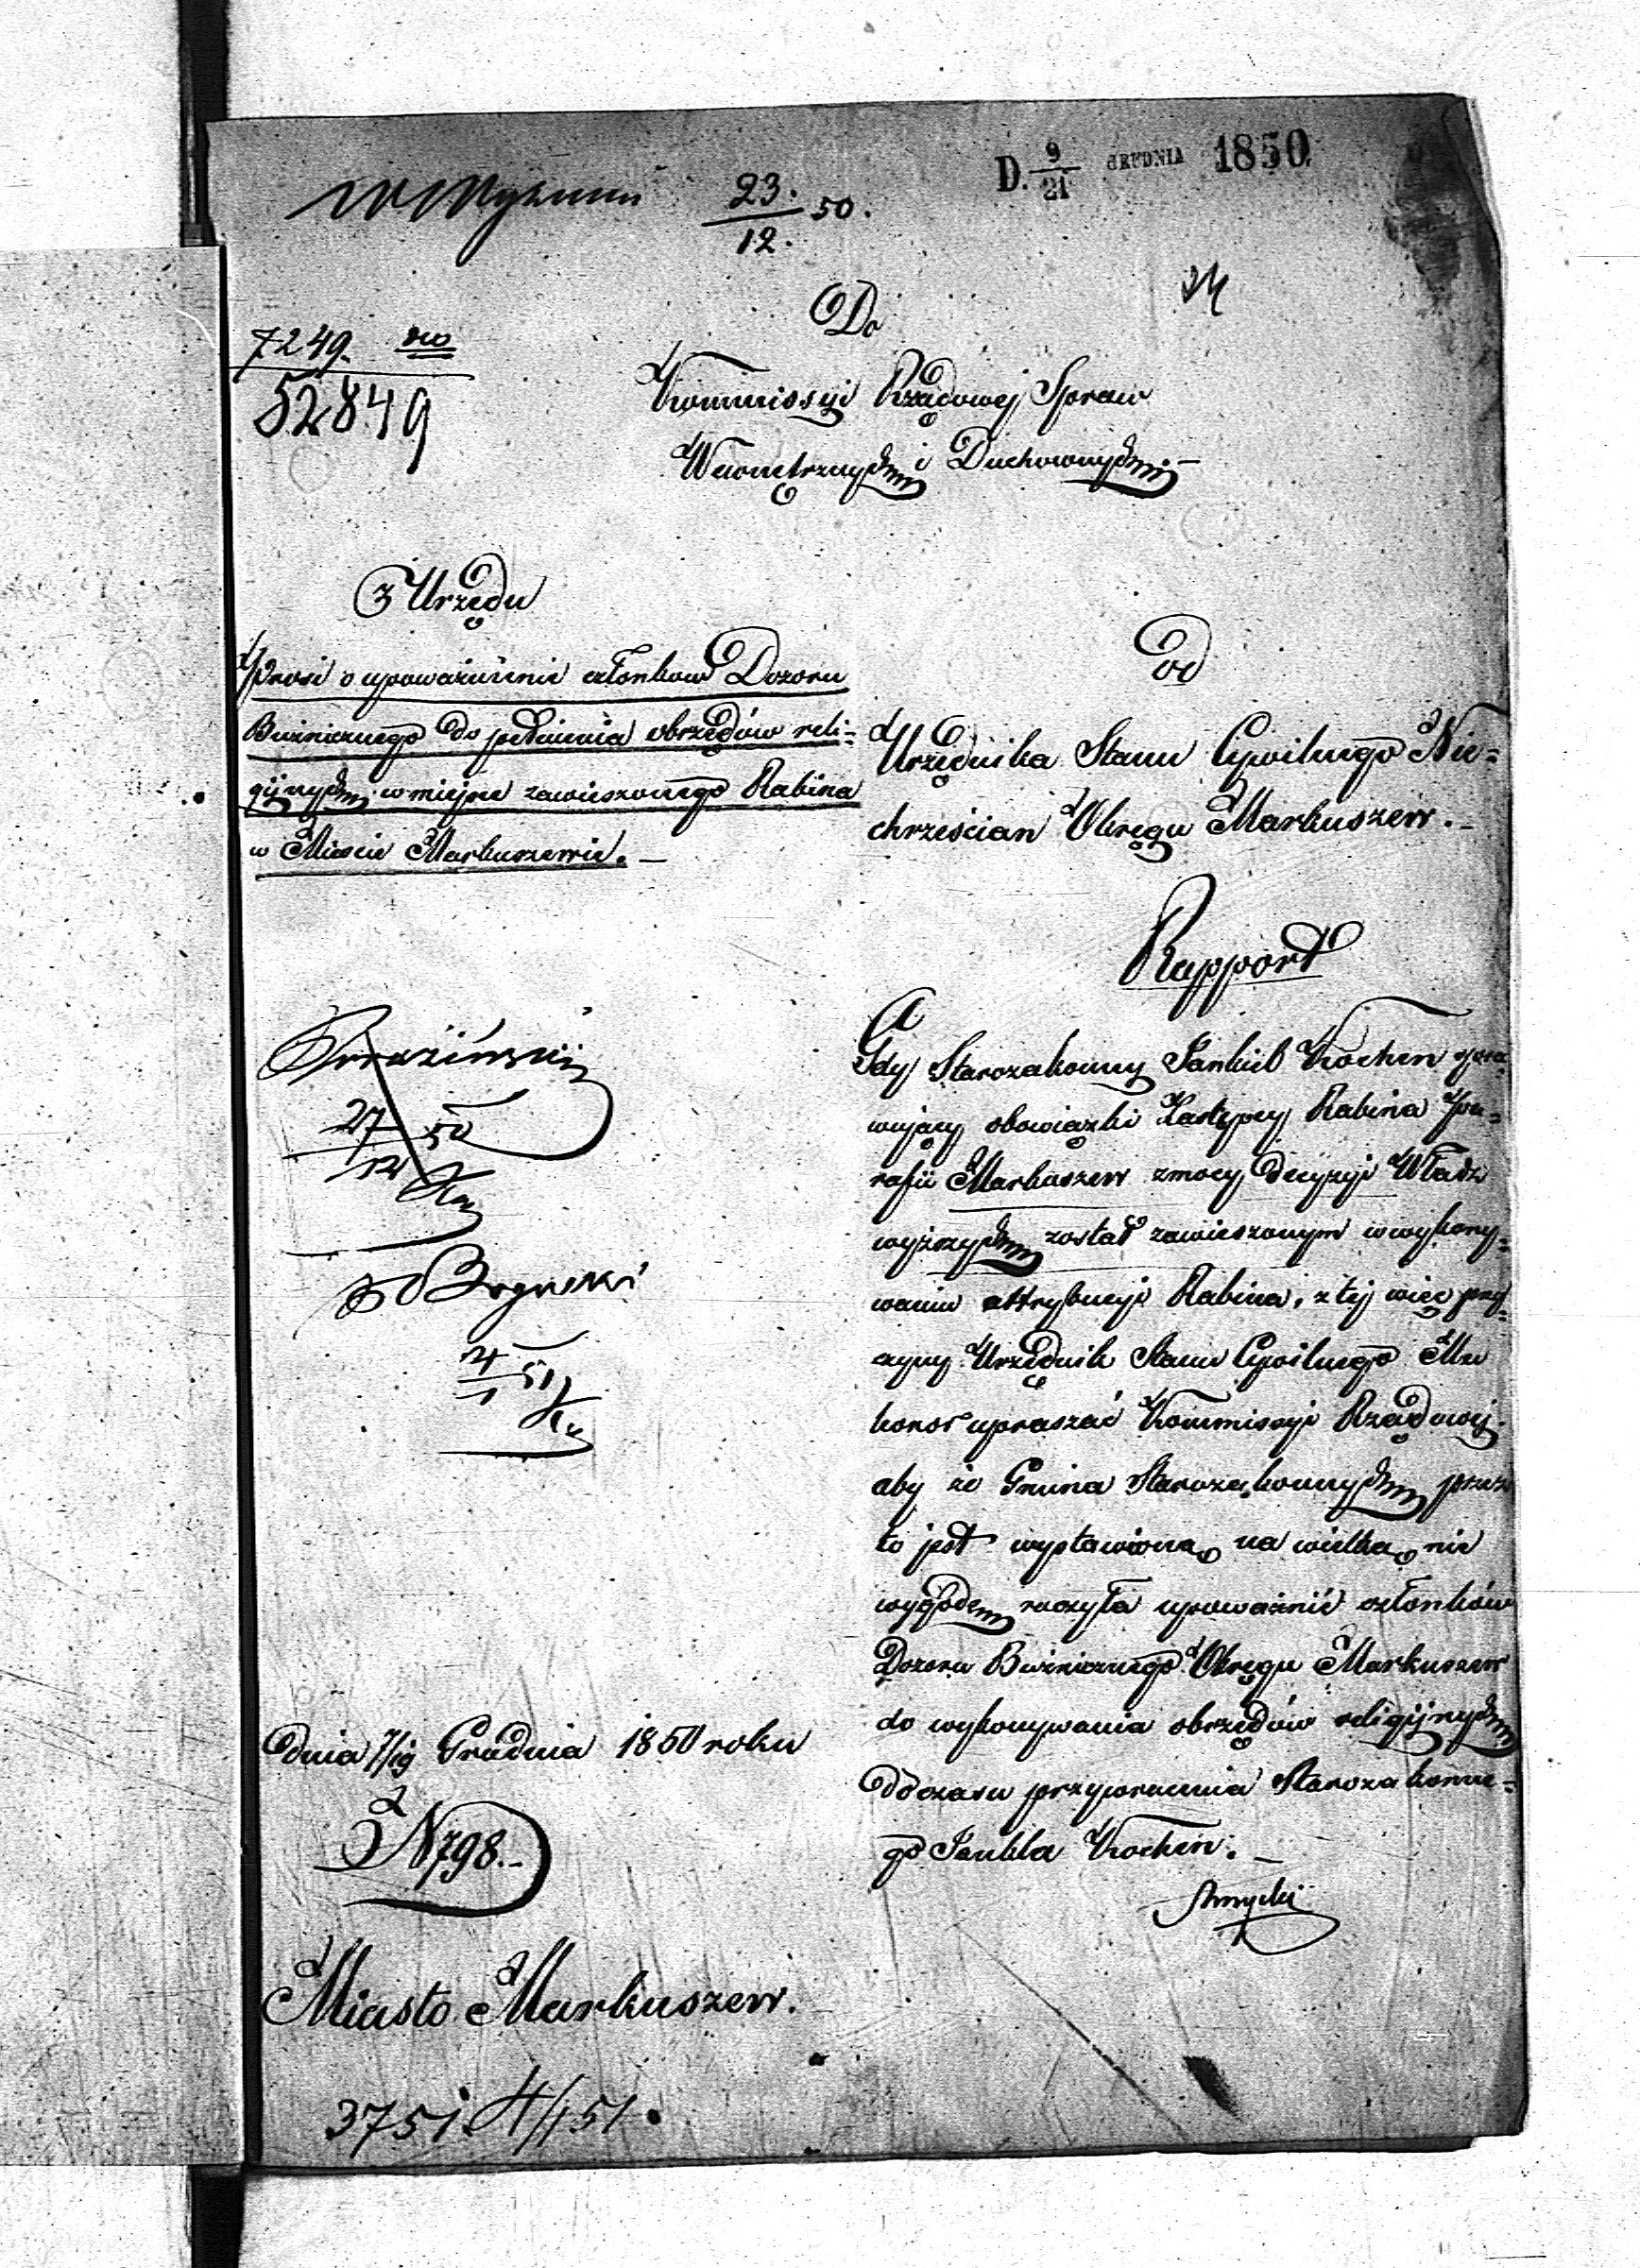 D. 9/21 GRUDNIA 1850
23./12. 50.
24
7249.
52849
Do
Kommissyi Rządowej Spraw
Wewnętrznych i Duchownych
Z Urzędu
Prosi o upoważnienie członków Dozoru
Bużnicznego do pełnienia obrzędów reli=
gijnych w miejsce zawieszonego Rabina
w Mieście Markuszewie. –
od
Urzędnika Stanu Cywilnego Nie=
chrześcian Okręgu Markuszew. –
Rapport
Gdy Starozakonny Jankiel Kochen spra=
wujący obowiązki Zastępcy Rabina Pa=
rafii Markuszew z mocy Decyzyi Władz
wyższych został zawieszonym w wykony=
waniu attrybucyi Rabina, z tej więc przy=
czyny Urzędnik Stanu Cywilnego Ma
honor upraszać Kommissyi Rządowej
aby że Gmina Starozakonnych przez
to jest wystawioną na wielką nie
wygodę raczyła upoważnić członków
Dozoru Bużnicznego Okręgu Markuszew
do wykonywania obrzędów religijnych
do czasu przywrócenia Starozakonne=
go Jankla Kochen. –
27/12 50
4/1 51
dnia 7/19 Grudnia 1850 roku
N 798. –
Miasto Markuszew.
3751. 4/1 51.